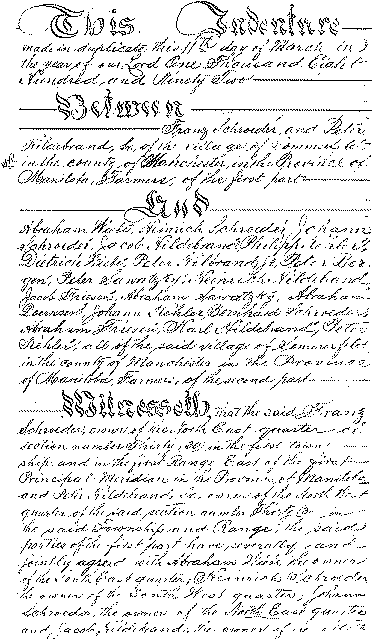 This Indenture
made in duplicate this 11th day of March in
the year of our Lord One Thousand Eight
Hundred and Ninety Two
Between
Franz Schroeder, and Peter
Hildebrand, Sr, of the village of Sommerfelt
in the county of Manchester, in the Province of
Manitoba, Farmers, of the first part
And
Abraham Heinrich Schroeder, Johann
Schroeder, Jacob Hildebrand, Philipp
Dietrich Peter Hildebrand, Jr, Peter
Peter Sawatzky, Heinrich Hildebrand,
Jacob Friesen, Abraham Sawatzky, Abraham
Johann Kehler, Bernhard Schroeder,
Abraham Friesen, Karl Hildebrand, Peter
Kehler, all of the said village of Sommerfelt
in the county of Manchester in the Province
of Manitoba, Farmers, of the second part
Witnesseth, that the said Franz
Schroeder, owner of the North East quarter of
section number Thirty six in the first town
ship and in the first Range East of the first
Principal Meridian in the Province of Manitoba
and Peter Hildebrand, Sr. owner of the North West
quarter of the said section number Thirty six in
the said Township and Range, the said
parties of the first part have severally and
jointly agreed with Abraham the owner
of the South East quarter, Heinrich Schroeder
the owner of the South West quarter, Johann
Schroeder, the owner of the North East quarter
and Jacob Hildebrand, the owner of